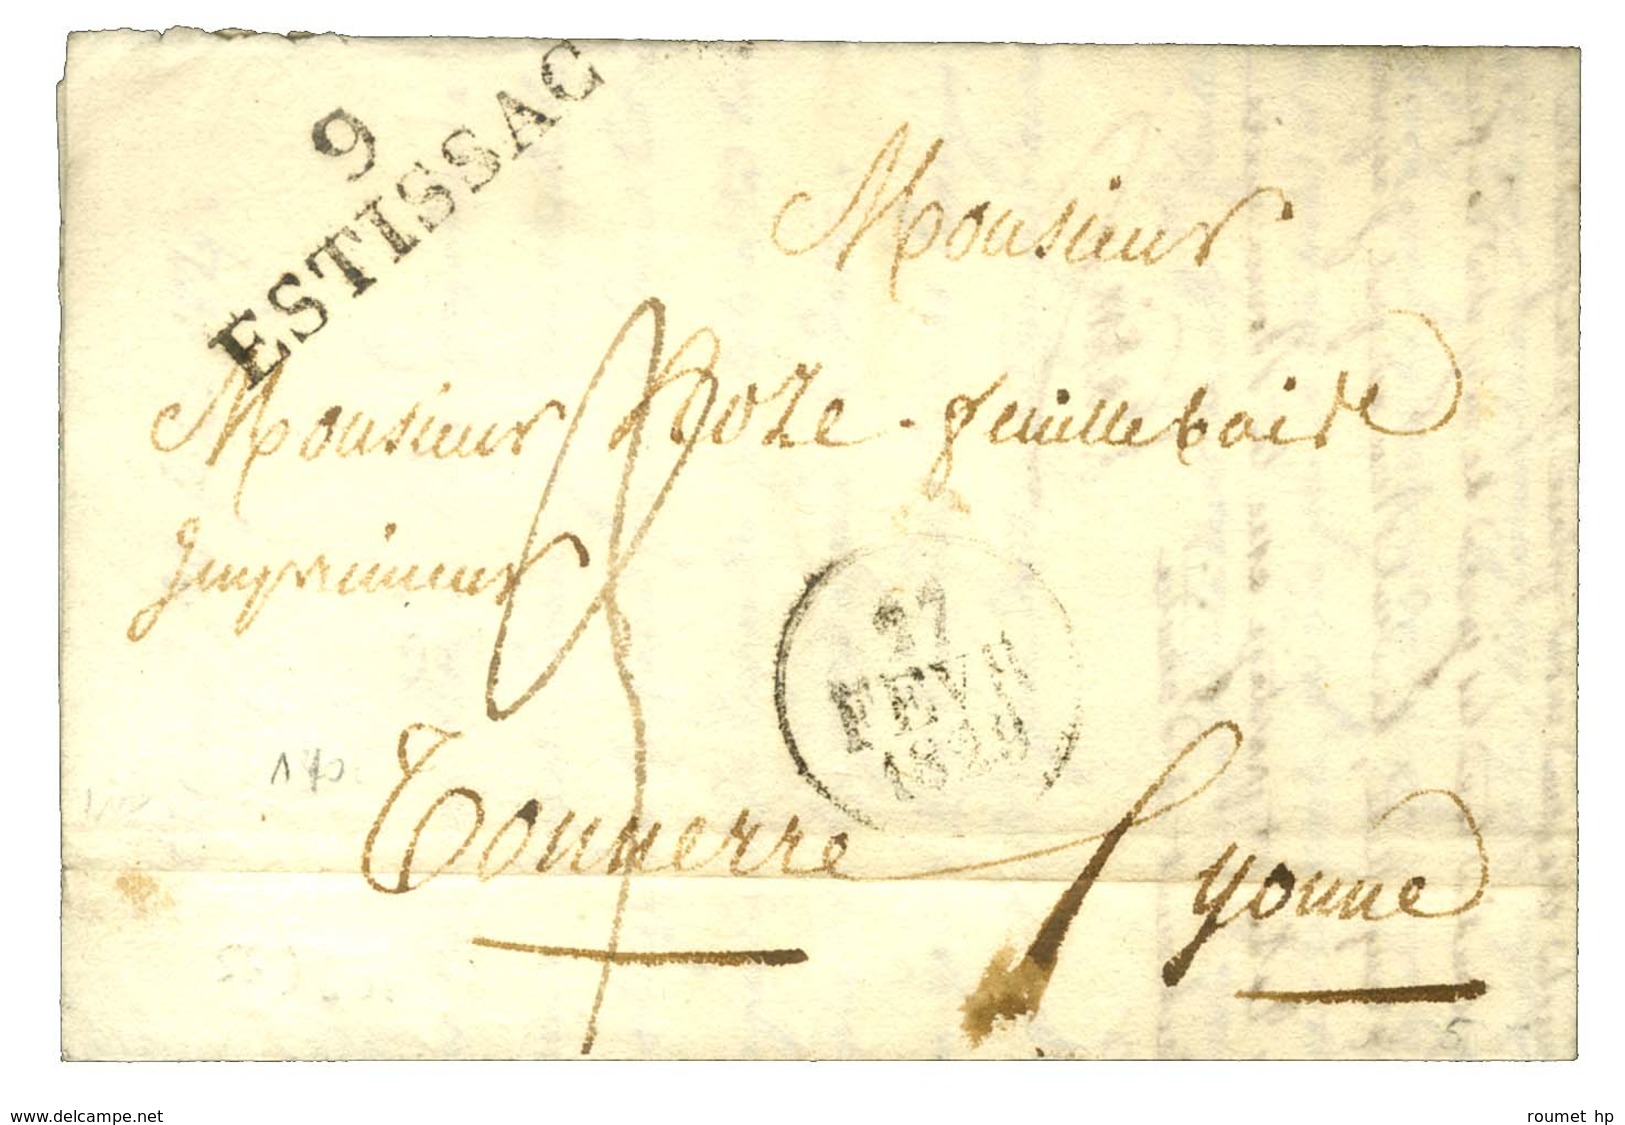 9
ESTISSAC
Monsieur
Monsieur Roze. feuillebaide
Imprimeur
27
FEVR
1829
170
Tonnerre yonne
5
www.delcampe.net
roumet hp